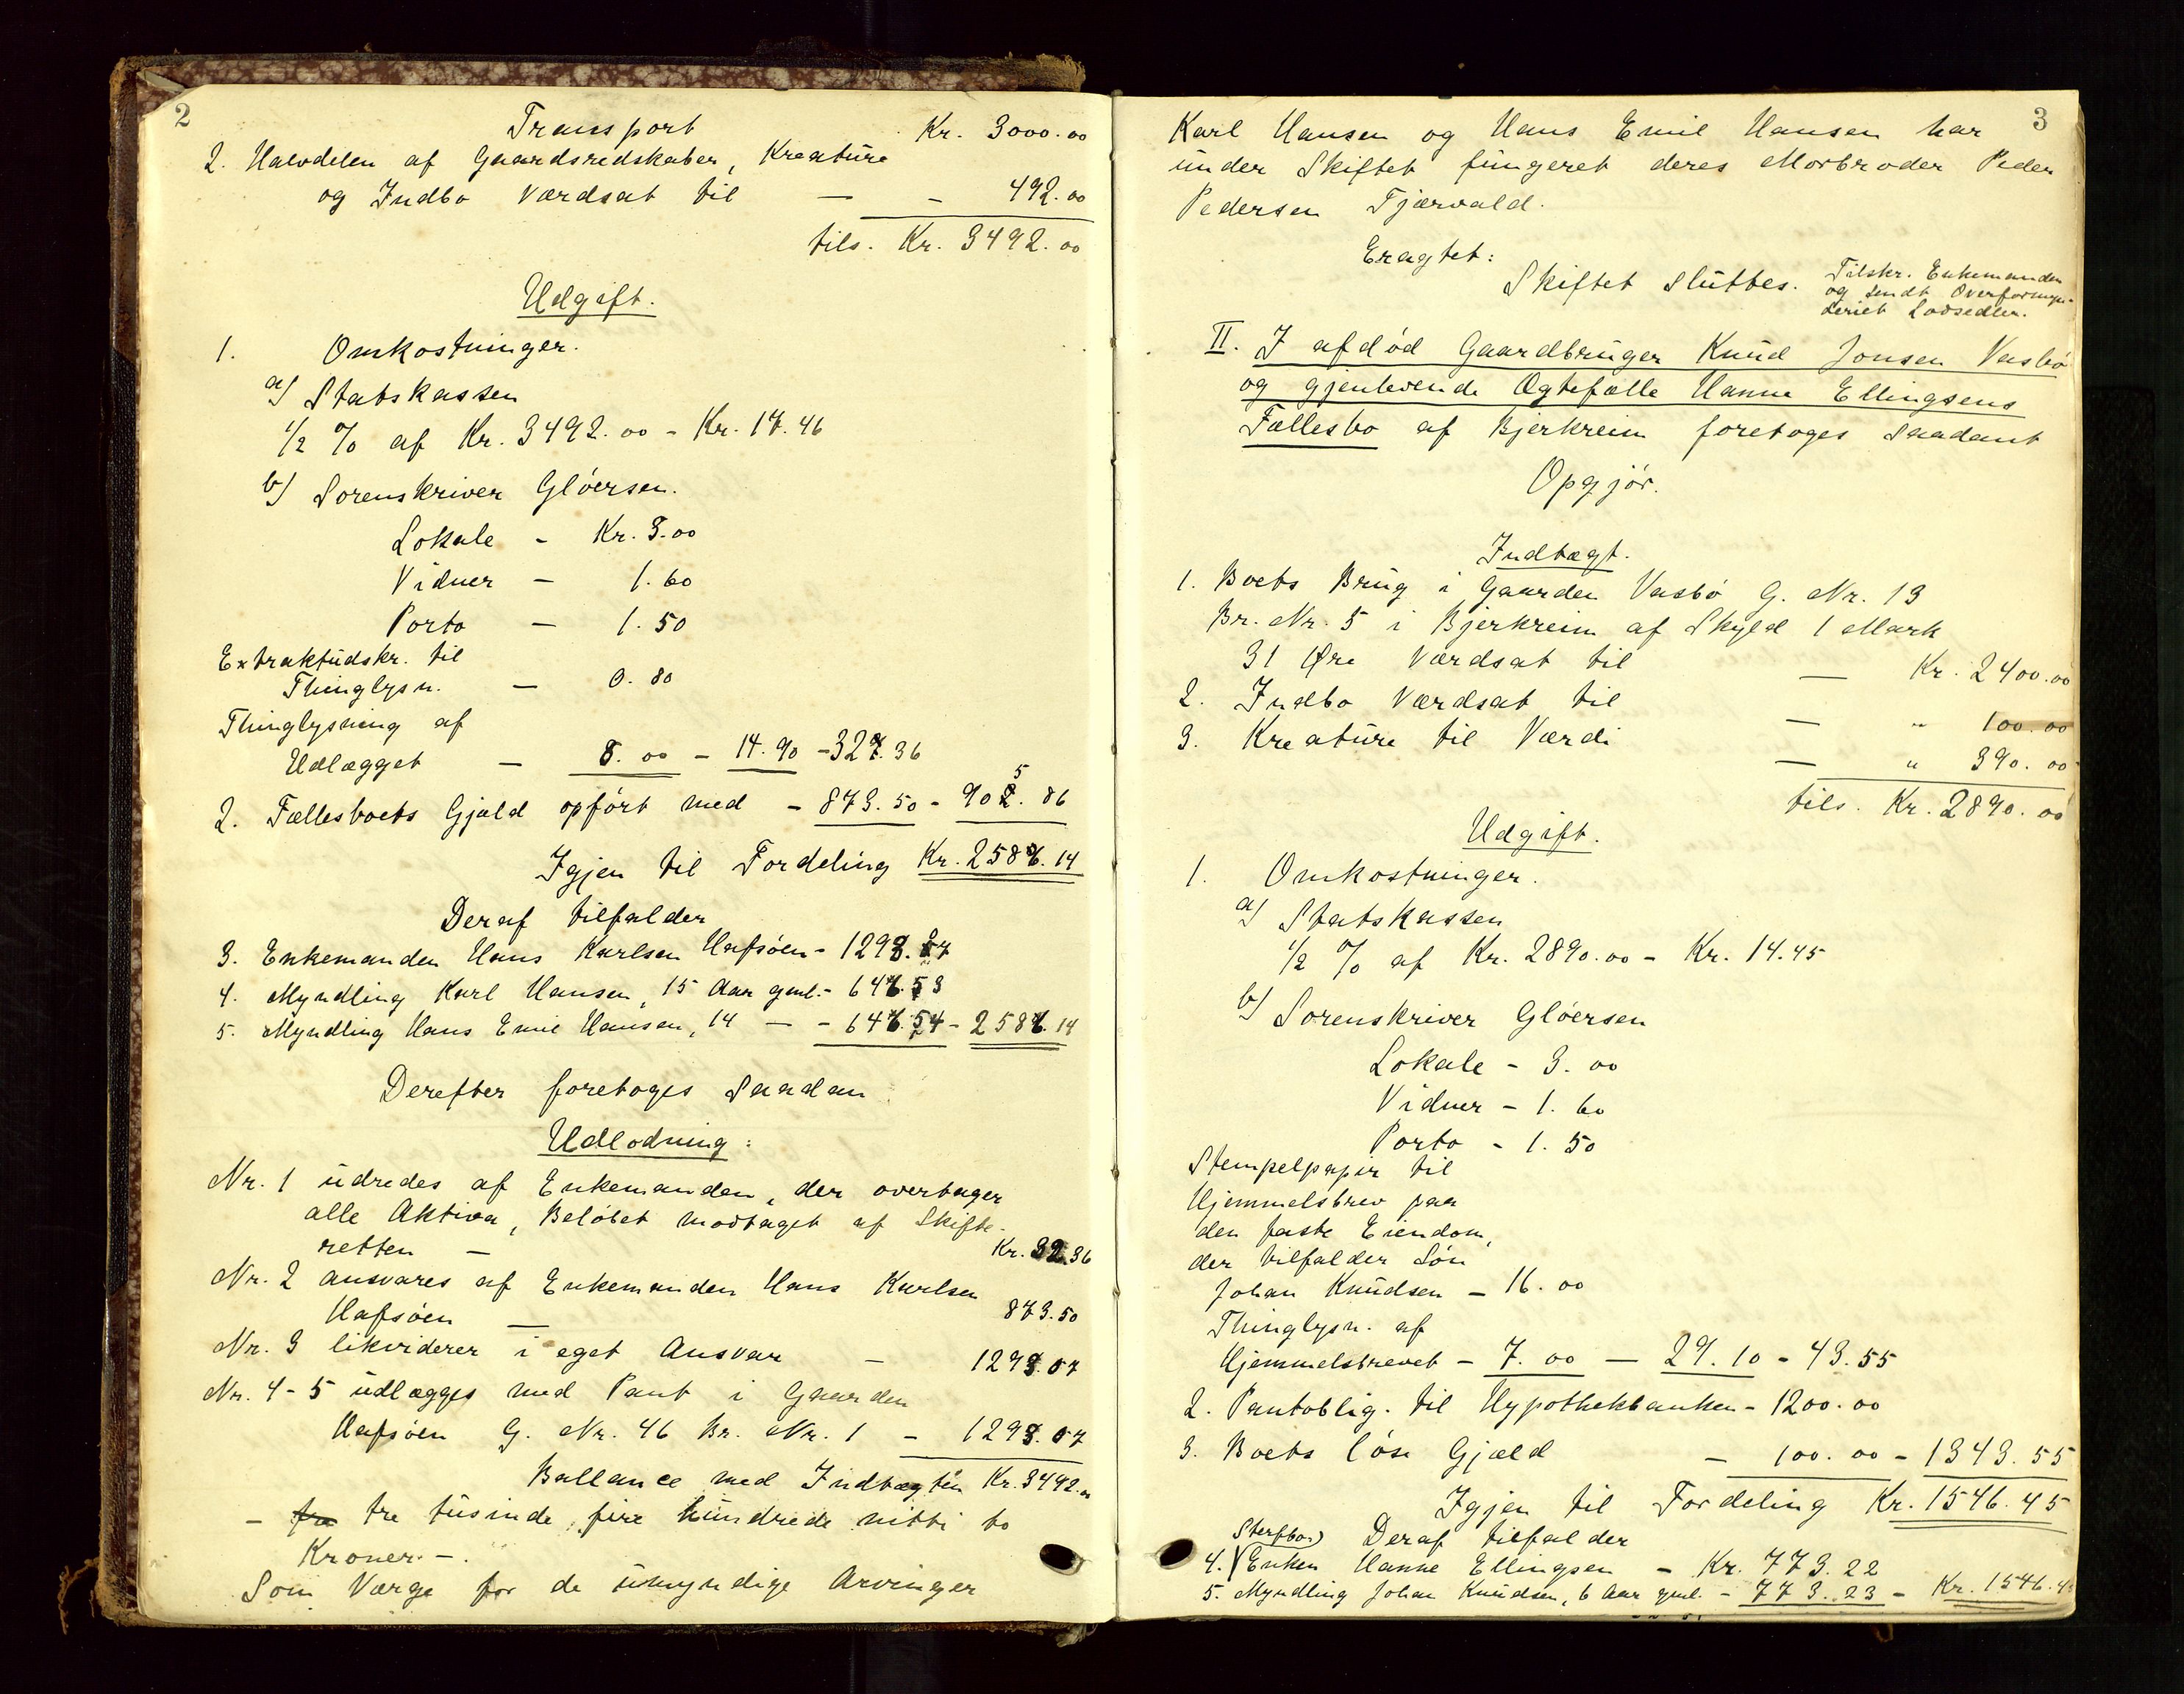 2
Transport Kr. 3000.00
2. Halvdelen af Gaardsredskaber, Kreature
og Indbo Værdsat til — - 492.00
tils. Kr. 3492.00
Udgift.
1. Omkostninger.
a) Statskassen
1/2 % af Kr. 3492.00 - Kr. 17.46
b) Sorenskriver Gløersen.
Lokale - Kr. 3.00
Vidner — 1.60
Porto — 1.50
Extraktudskr. til
Thinglysn. — 0.80
Thinglysning af
Udlægget — 8.00 - 14.90 - 32.36
2. Fællesboets Gjæld opført med - 873.50 - 905.86
Igjen til Fordeling Kr. 2586.14
Deraf tilfalder
3. Enkemanden Hans Karlsen Hafsøen - 1293.07
4. Myndling Karl Hansen, 15 Aar gml. - 646.53
5. Myndling Hans Emil Hansen, 14 — - 646.54 - 2586.14
Derefter foretoges Saadan
Udlodning:
Nr. 1 udredes af Enkemanden, der overtager
alle Aktiva, Beløbet modtaget af Skifte-
retten — Kr. 32.36
Nr. 2 ansvares af Enkemanden Hans Karlsen
Hafsøen — 873.50
Nr. 3 likviderer i eget Ansvar — 1293.07
Nr. 4-5 udlægges med Pant i Gaarden
Hafsøen G. Nr. 46 Br. Nr. 1 - 1293.07
Ballance med Indtægten Kr. 3492.00
- tre tusinde, fire hundrede nitti to
Kroner. -.
Som Værge for de umyndige Arvinger
3
Karl Hansen og Hans Emil Hansen har
under Skiftet fungeret deres Morbroder Peder
Pedersen Tjærvald.
Eragtet:
Skiftet Sluttes. Tilskr. Enkemanden
og Sendt Overformyn-
deriet Lodsedler.
II. I afdød Gaardbruger Knud Jonsen Vasbø
og gjenlevende Ægtefælle Hanne Ellingsens
Fællesbo af Bjerkreim foretoges Saadant
Opgjør.
Indtægt.
1. Boets Brug i Gaarden Vasbø G. Nr. 13
Br. Nr. 5 i Bjerkreim af Skyld 1 Mark
31 Øre Værdsat til — Kr. 2400.00
2. Indbo Værdsat til — " 100.00
3. Kreature til Værdi — " 390.00
tils. Kr. 2890.00
Udgift.
1. Omkostninger.
a) Statskassen
1/2 % af Kr. 2890.00 - Kr. 14.45
b) Sorenskriver Gløersen
Lokale - 3.00
Vidner - 1.60
Porto - 1.50
Stempelpapir til
Hjemmelsbrev paa
den faste Eiendom,
der tilfalder Søn
Johan Knudsen - 16.00
Thinglysn. af
Hjemmelsbrevet - 7.00 — 29.10 - 43.55
2. Pantoblig. til Hypothekbanken - 1200.00
3. Boets løse Gjæld - 100.00 - 1343.55
Igjen til Fordeling Kr. 1546.45
Deraf tilfalder
4. (Sterfbo) Enken Hanne Ellingsen - Kr. 773.22
5. Myndling Johan Knudsen, 6 Aar gml. - 773.23 - Kr. 1546.45